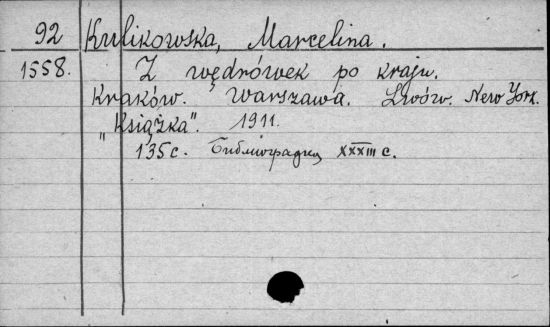 92 Kulikowska, Marcelina.
1558. Z wędrówek po kraju.
Kraków. Warszawa. Lwów. New York.
„Książka". 1911.
135 с. Библиография XXXIII с.